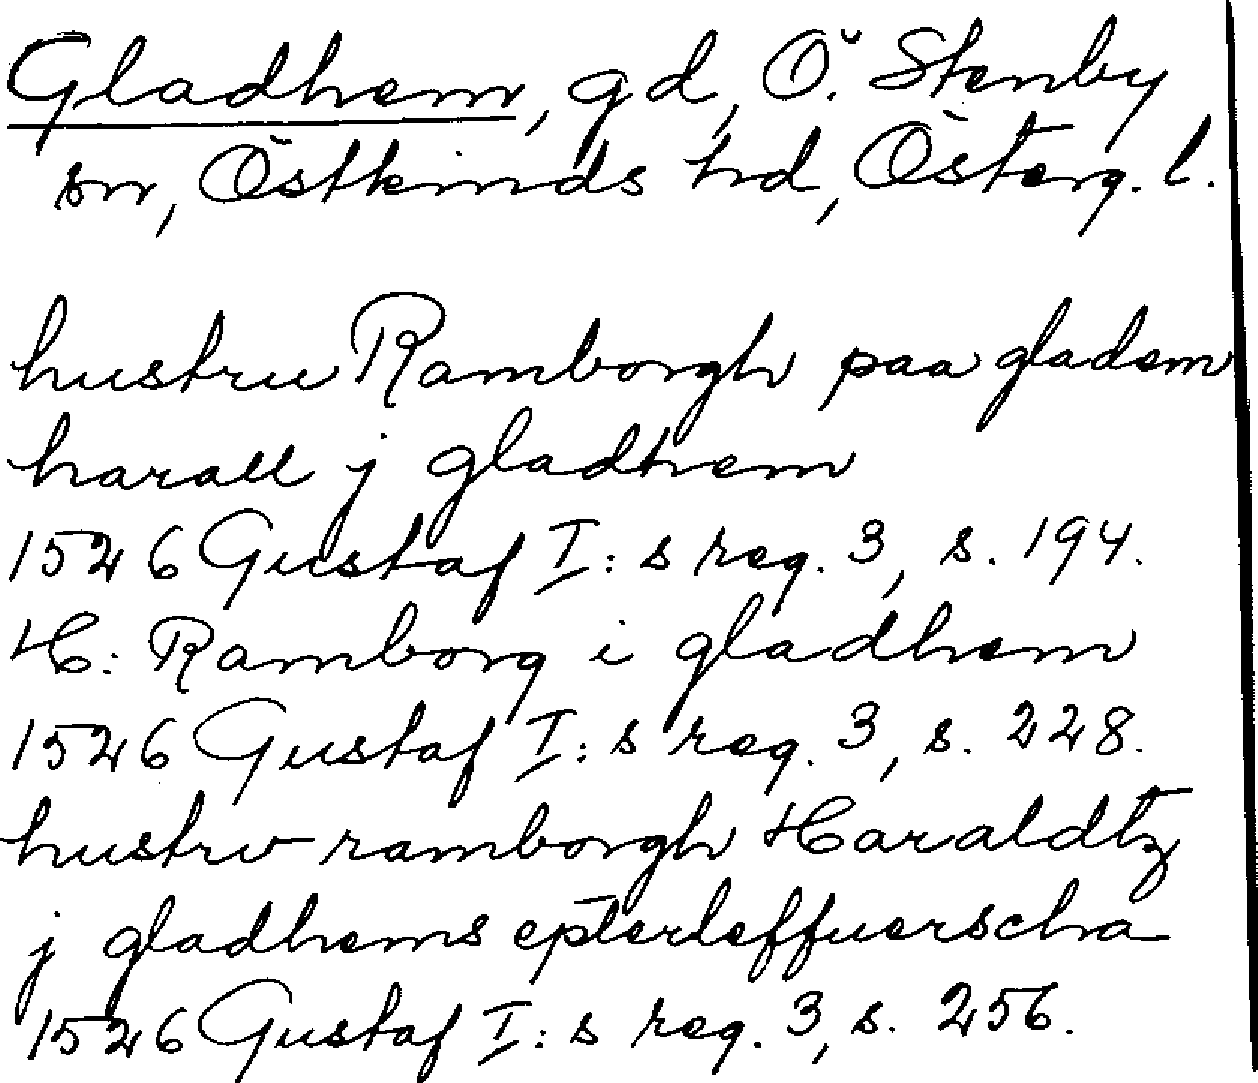 Gladhem, gd, Ö. Stenby
sn, Östkinds hd, Österg. l.
hustru Ramborgh paa gladem
harall j gladhem
1526 Gustaf I: s reg. 3, s. 194.
H: Ramborg i gladhem
1526 Gustaf I: s reg. 3, s. 228.
hustrv ramborgh Haraldtz
j gladhems epterleffuerscha
1526 Gustaf I: s reg. 3, s. 256.